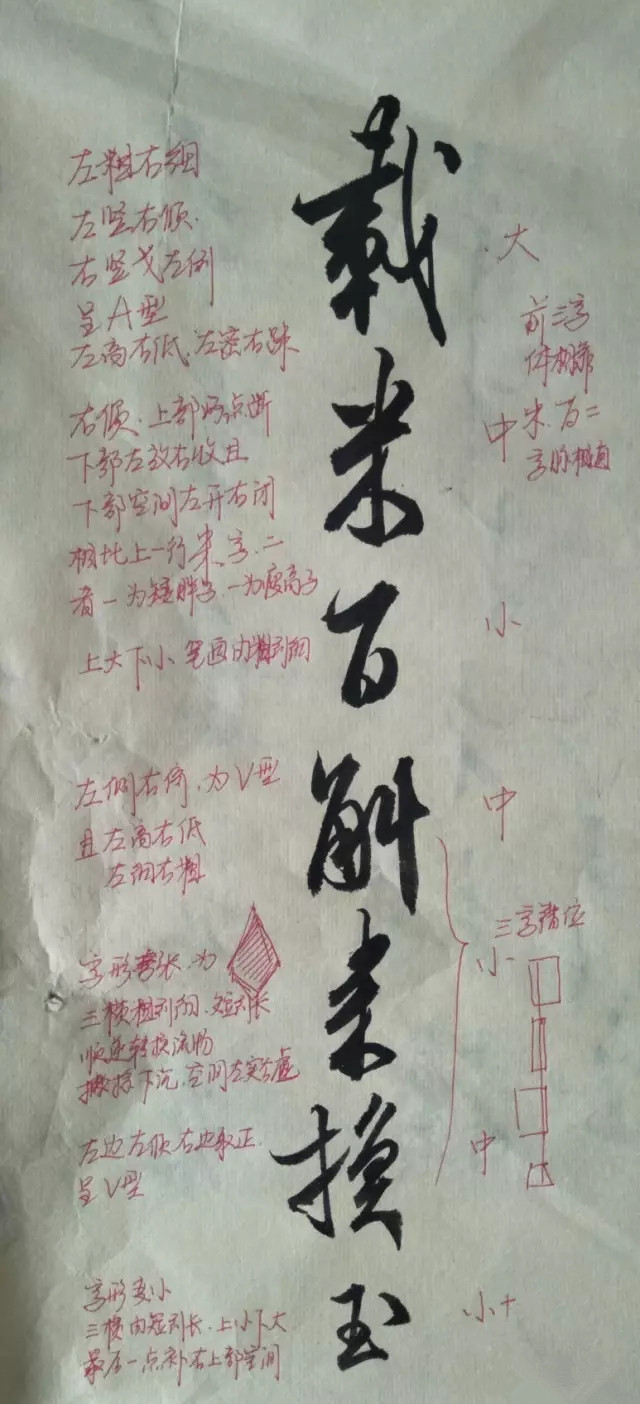 载米百斛来换玉
左粗右细
左竖右倾.
右竖戈左倒
呈A型
左高右低.左密右疎
右倾.上部两点断
下部左放右收且
下部空间左开右闭
相比上一行米字.二
者一为矮胖字.一为瘦高字
上大下小.笔画由粗到细
左倒右倚.为V型
且左高右低
左细右粗
字形夸张.为
三横粗到细.短到长
顺逆转换流畅
撇捺下沉.空间左实右虚
左边左倾右边取正.
呈V型
字形变小
三横由短到长.上小下大
最后一点补右上部空间
大
前三字
体相靠
中
米.百二
字脉相直
小
中
三字错位
小
中
小+